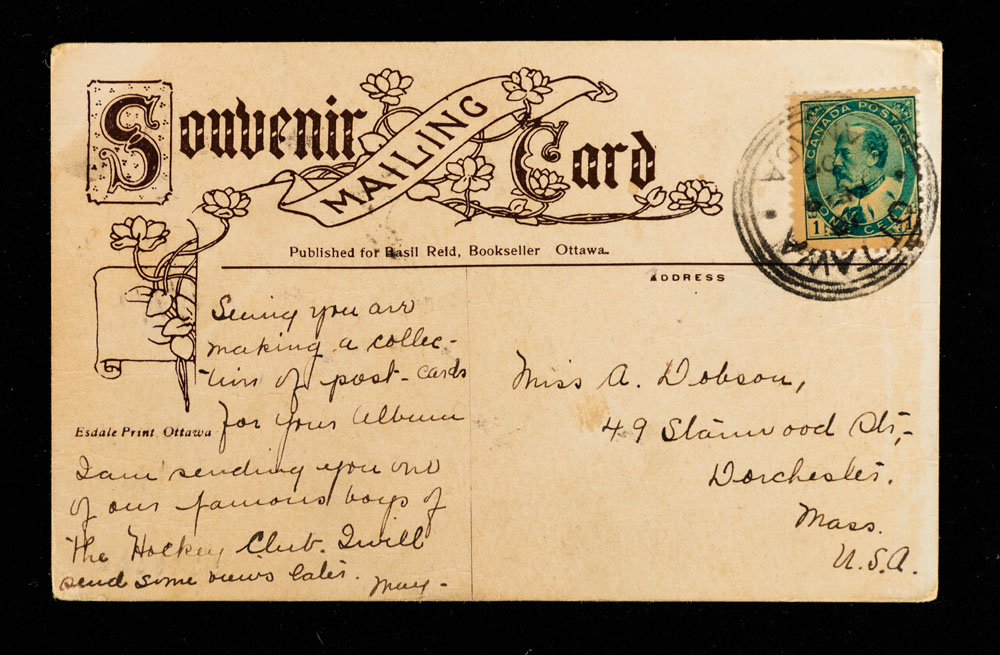 Souvenir MAILING Card
Published for Basil Reid, Bookseller Ottawa.
ADDRESS
CANADA POSTAGE
1 ONE CENT 1
OTTAWA
Seeing you are
making a collec-
tion of post-cards
for your album
Esdale Print, Ottawa
I am sending you one
of our famous boys of
the Hockey Club. I will
send some views later.
May-
Miss A. Dobson,
49 Stanwood St.,
Dorchester.
Mass.
U.S.A.